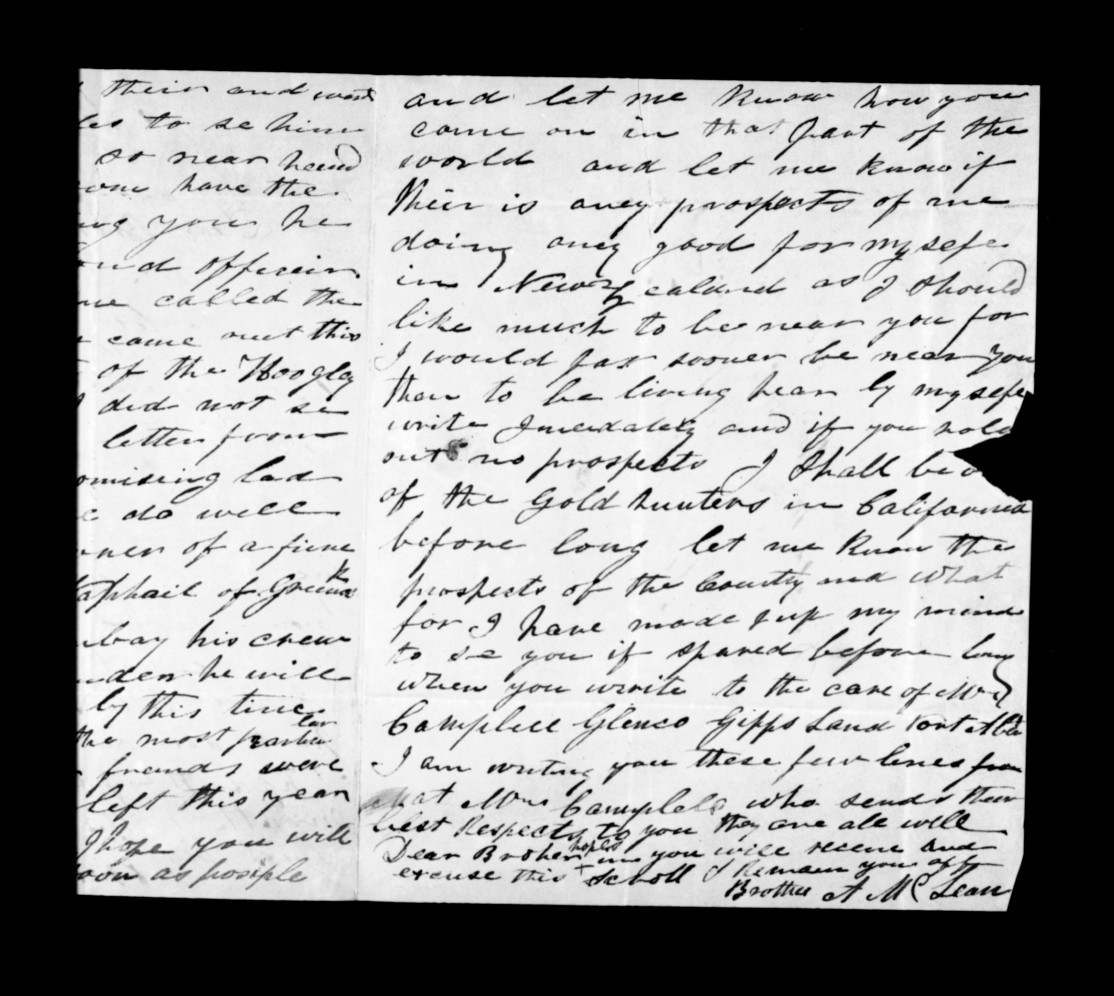 their and
to se him
so near
have the
you he
officeir
called the
came out this
of the Hoogley
did not se
letter from
omising lad
do well
ner of a fine
aphail of Greenock
bay his crew
den he will
by this time
the most particular
friends were
left this year
I hope you will
oon as posiple
and let me know how you
come on in that part of the
world and let me know if
their is aney prospects of me
doing aney good for mysefe
in New Zealand as I should
like much to be near you for
I would far sooner be near you
than to be living hear by mysefe
write and if you hold
out no prospects I shall be
of the Gold hunters in California
before long let me know the
prospects of the Country and what
for I have made up my mind
to se you if spared before long
when you write to the care of Mr
Campbell Glenco Gipps Land Port Alb
I am writing you these few lines from
that Mrs Campbells who sends their
best Respects to you they are all well
Dear Brother hopes you will receve and
excuse this Scroll I Remain you afft
Brother A McLean